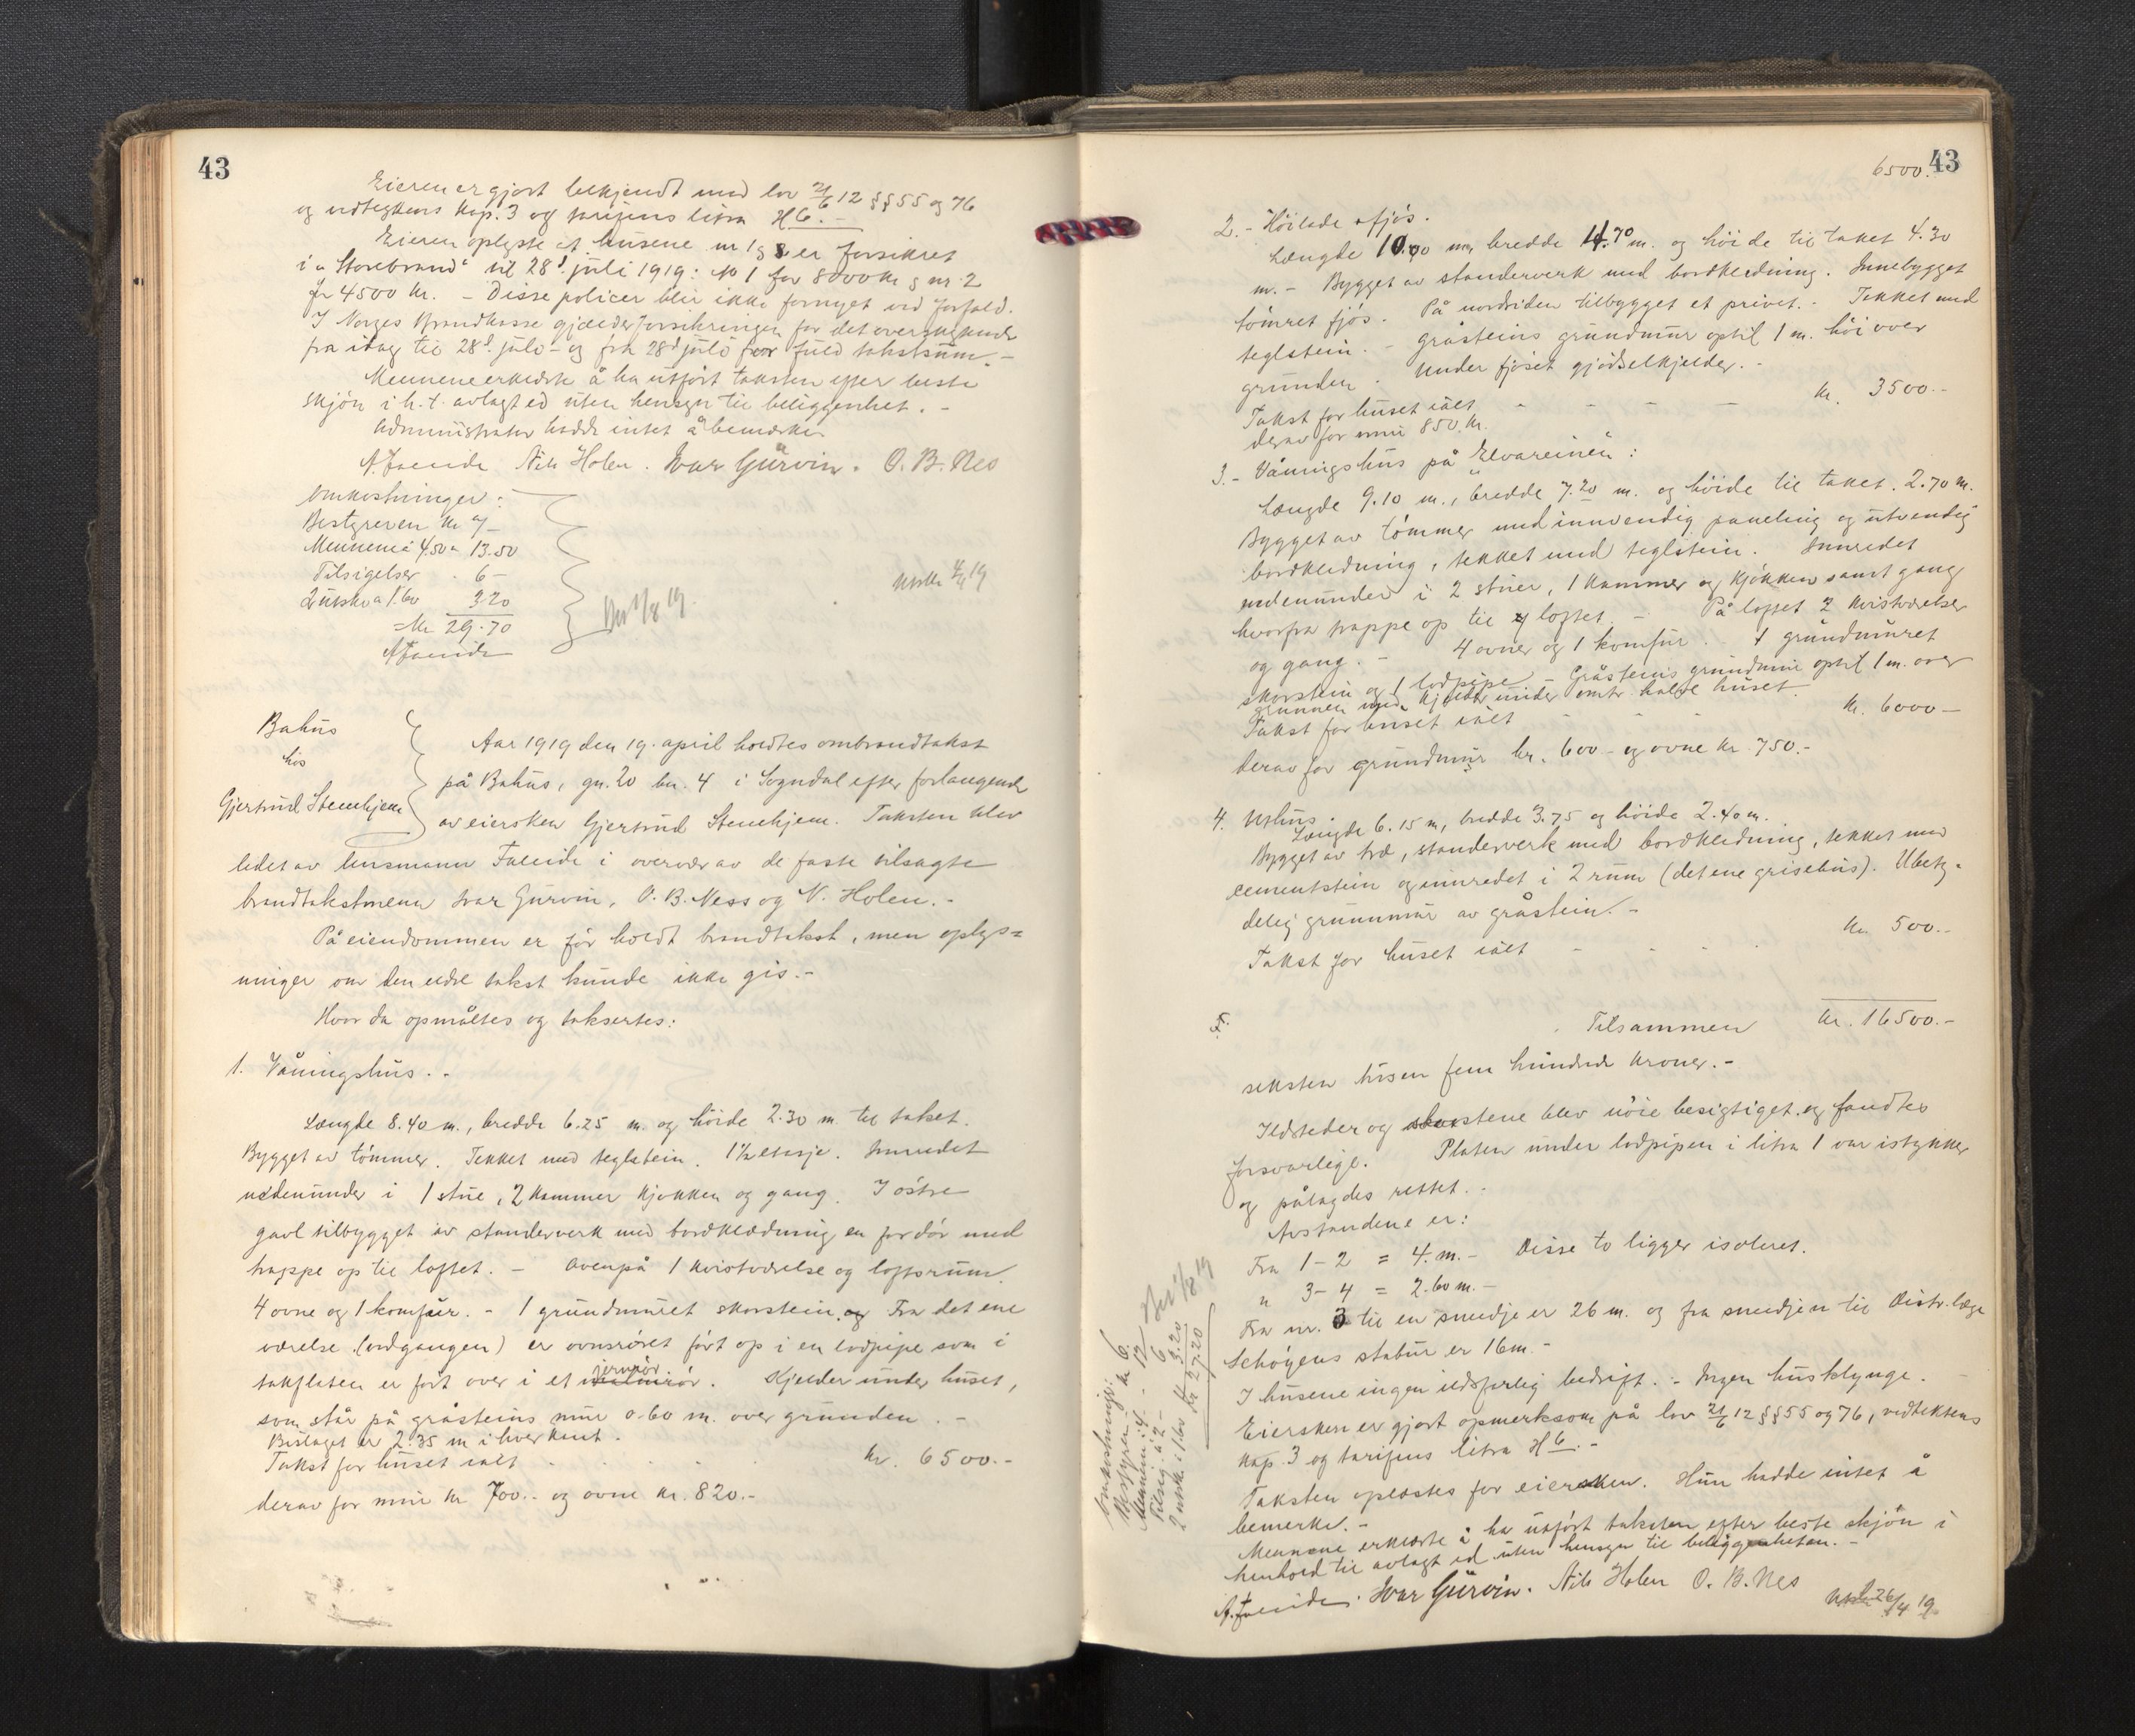 43
Eieren er gjort bekjendt med lov 21/6 12 §§ 55 og 76
og vedtegtens kap. 3 og tarifens litra H 6. -
Eieren oplyste at husene nr 1 og 2 er forsikret
i "Storebrand" til 28d juli 1919: No 1 for 8000 kr og nr. 2
for 4500 kr. - Disse policer blir ikke fornyet ved forfald.
I Norges Brandkasse gjælder forsikringen for det overskytende
fra idag til 28d. juli - og fra 28d juli for fuld takstsum. -
Mennene erklærte å ha utført taksten efter beste
skjön i h. t. avlagt ed uten hensyn til beliggenhet. -
Administrator hadde intet å bemerke.
A. Faleide Nils Holen. Ivar Gürvin. O. B. Nes
Omkostninger:
Bestyreren kr 7/-
Mennene á 4.50 = 13.50
Tilsigelser . 6 -
2 utskr a 1.60 3.20
= kr 29.70
A Faleide
Bahus
hos
Gjertrud Stenehjem
Aar 1919 den 19. april holdtes ombrandtakst
på Bahus, gn. 20 bn. 4 i Sogndal efter forlangende
av eiersken Gjertrud Stenehjem. Taksten blev
ledet av lensmann Faleide i overvær av de faste tilsagte
brandtakstmenn Ivar Gurvin, O. B. Ness og N. Holen. -
På eiendommen er för holdt brandtakst, men oplys=
ninger om den eldre takst kunde ikke gis. -
Hvor da opmåltes og taksertes:
1. Våningshus. -
Længde 8.40 m., bredde 6.25 m. og höide 2.30 m. til taket.
Bygget av tömmer. Tekket med teglstein. 1 1/2 etasje. Innredet
nedenunder i 1 stue, 2 kammer kjökken og gang. I östre
gavl tilbygget av standerverk med bordklædning en fordör med
trappe op til loftet. - Ovenpå 1 kvistværelse og loftsrum.
4 ovne og 1 komfur. - 1 grundmuret skorstein. og Fra det ene
værelse (indgangen) er ovnsröret fört op i en lodpipe som i
takflaten er fört over i et jernrör. Kjelder under huset,
som står på gråsteins mur 0.60 m. over grunden. -
Bislaget er 2.35 m i hver kant.
Takst for huset ialt . . . . kr. 6500.-
derav for mur kr 700.- og ovne kr. 820.-
43
6500.
2. - Höilade o fjös.
Længde 10.00 m, bredde 4.70 m. og höide til taket 4.30
m. - Bygget av standerverk med bordkledning. Innebygget
tömret fjös. På nordsiden tilbygget et privet. - Tekket med
teglstein. - Gråsteins grundmur optil 1 m. höi over
grunden. Under fjöset gjödselkjelder. -
Takst for huset ialt - - - - kr. 3500.-
derav for mur 850 kr.
3. - Våningshus på "Elvareinen":
Længde 9.10 m., bredde 7.20 m. og höide til taket. 2.70 m.
Bygget av tömmer med innvendig paneling og utvendig
bordkledning, tekket med teglstein. Innredet
nedenunder i 2 stuer, 1 kammer og kjökken samt gang
hvorfra trappe op til loftet. - På loftet 2 kvistværelser
og gang. - 4 ovner og 1 komfur. 1 grundmuret
skorstein og 1 lodpipe - Gråsteins grundmur optil 1 m. over
grunnen med kjelder under omtr. halve huset.
Takst for huset ialt - - - kr. 6000 -
derav for grundmur kr. 600 - og ovne kr 750.-
4. Uthus.
Længde 6.15 m, bredde 3.75 og höide 2.40 m.
Bygget av træ, standerverk med bordkledning, tekket med
cementstein og innredet i 2 rum (det ene grisehus). Ubety=
delig grunnmur av gråstein. -
Takst for huset ialt - - - - kr. 500.-
Tilsammen kr. 16500.-
seksten tusen fem hundrede kroner. -
Ildsteder og skorstene blev nöie besigtiget og fandtes
forsvarlige. Platen under lodpipen i litra 1 var istykker
og pålagdes rettet. -
Avstandene er:
Fra 1 - 2 = 4. m. - Disse to ligger isoleret.
" 3 - 4 = 2.60 m. -
Fra nr. 3 til en smedje er 26 m. og fra smedjen til Distr. læge
Schöyens stabur er 16 m. -
I husene ingen ildsfarlig bedrift. - Ingen husklynge. -
Eiersken er gjort opmerksom på lov 21/6 12 §§ 55 og 76, vedtektens
kap. 3 og tarifens litra H 6. -
Taksten oplæstes for eiersken. Hun hadde intet å
bemerke. -
Mennene erklærte å ha utfört taksten efter beste skjön i
henhold til avlagt ed uten hensyn til beliggenheten. -
A. Faleide. Ivar Gürvin. Nils Holen O. B. Nes
26/4 19
Omkostninger:
Bestyreren kr 6.
Mennene á 4 - 12
Tilsig. á 2 - 6
2 utskr. á 1.60 3.20
kr 27.20